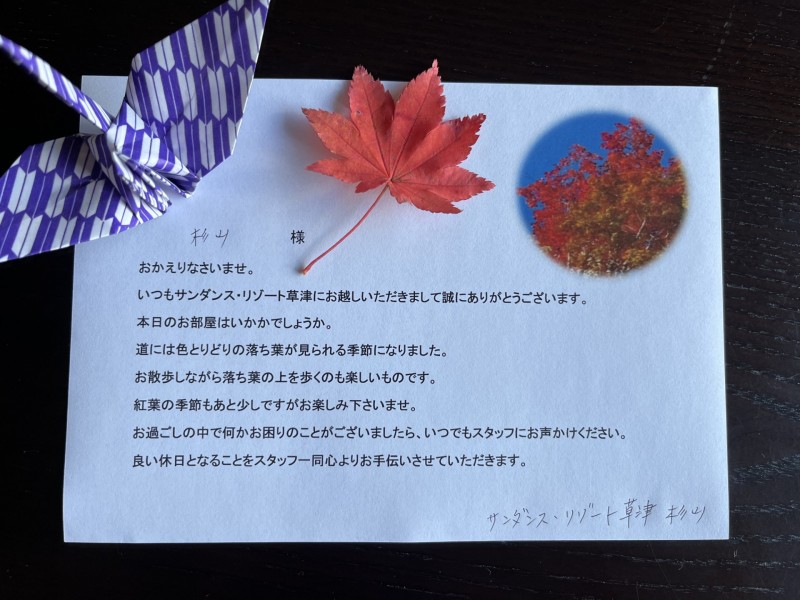 杉山 様
おかえりなさいませ。
いつもサンダンス・リゾート草津にお越しいただきまして誠にありがとうございます。
本日のお部屋はいかかでしょうか。
道には色とりどりの落ち葉が見られる季節になりました。
お散歩しながら落ち葉の上を歩くのも楽しいものです。
紅葉の季節もあと少しですがお楽しみ下さいませ。
お過ごしの中で何かお困りのことがございましたら、いつでもスタッフにお声かけください。
良い休日となることをスタッフ一同心よりお手伝いさせていただきます。
サンダンス・リゾート草津 杉山